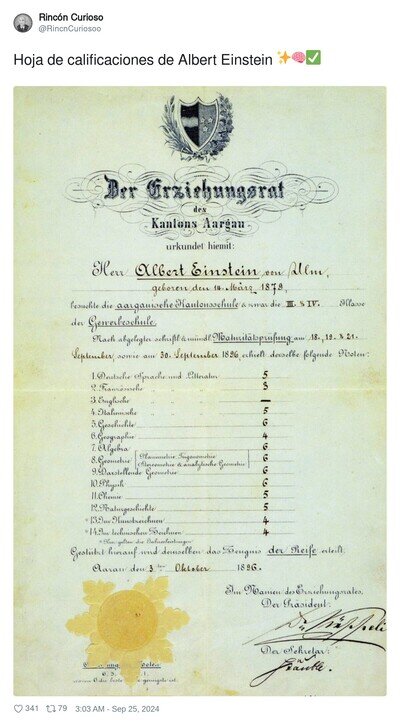 Rincón Curioso
@RincnCuriosoo
Hoja de calificaciones de Albert Einstein ✨🧠✅
Der Erziehungsrat
des
Kantons Aargau
urkundet hiemit:
Herr Albert Einstein von Ulm,
geboren den 14. März 1879,
besuchte die aargauische Kantonsschule & zwar die III. & IV. Klasse
der Gewerbeschule.
Nach abgelegter schriftl. & mündl. Maturitätsprüfung am 18., 19. & 21.
September, sowie am 30. September 1896, erhielt derselbe folgende Noten:
1. Deutsche Sprache und Litteratur 5
2. Französische " " " 3
3. Englische " " " —
4. Italienische " " " 5
5. Geschichte 6
6. Geographie 4
7. Algebra 6
8. Geometrie (Planimetrie, Trigonometrie, Stereometrie & analytische Geometrie) 6
9. Darstellende Geometrie 6
10. Physik 6
11. Chemie 5
12. Naturgeschichte 5
* 13. Im Kunstzeichnen 4
* 14. Im technischen Zeichnen 4
* Hier gelten die Jahresleistungen.
Gestützt hierauf wird demselben das Zeugnis der Reife erteilt.
Aarau den 3ten Oktober 1896.
Im Namen des Erziehungsrates,
Der Präsident:
Der Sekretär:
6. 5.
wovon 6 die beste 1 geringste ist.
341
79
3:03 AM - Sep 25, 2024